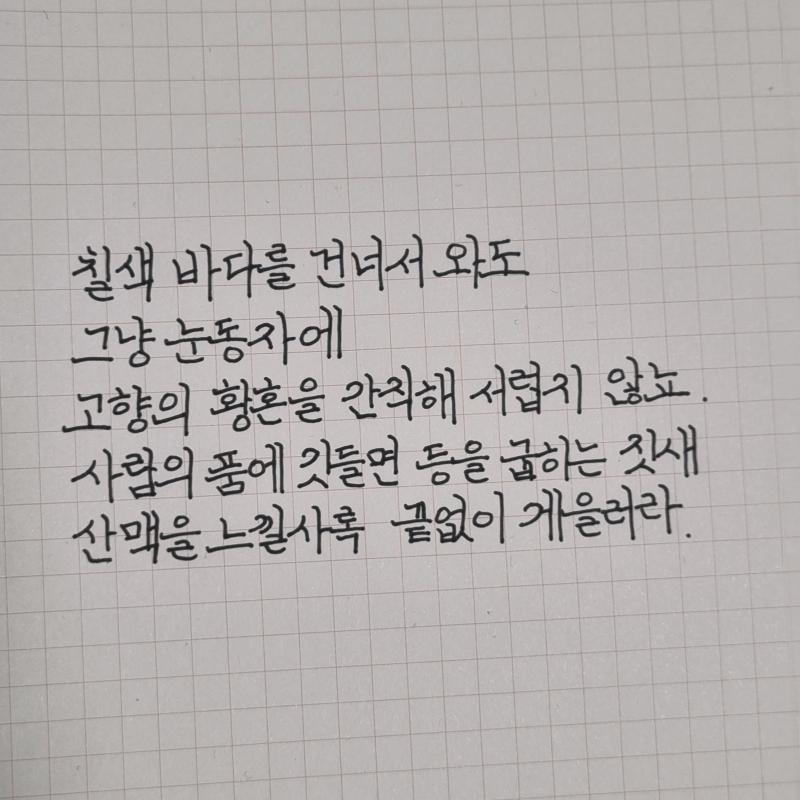 칠색 바다를 건너서 와도
그냥 눈동자에
고향의 황혼을 간직해 서럽지 않뇨.
사람의 품에 깃들면 등을 굽히는 짓새
산맥을 느낄사록 끝없이 게을러라.